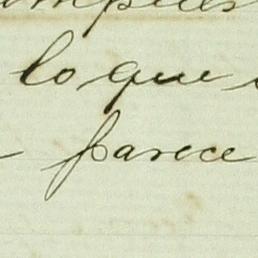 lo que
parece